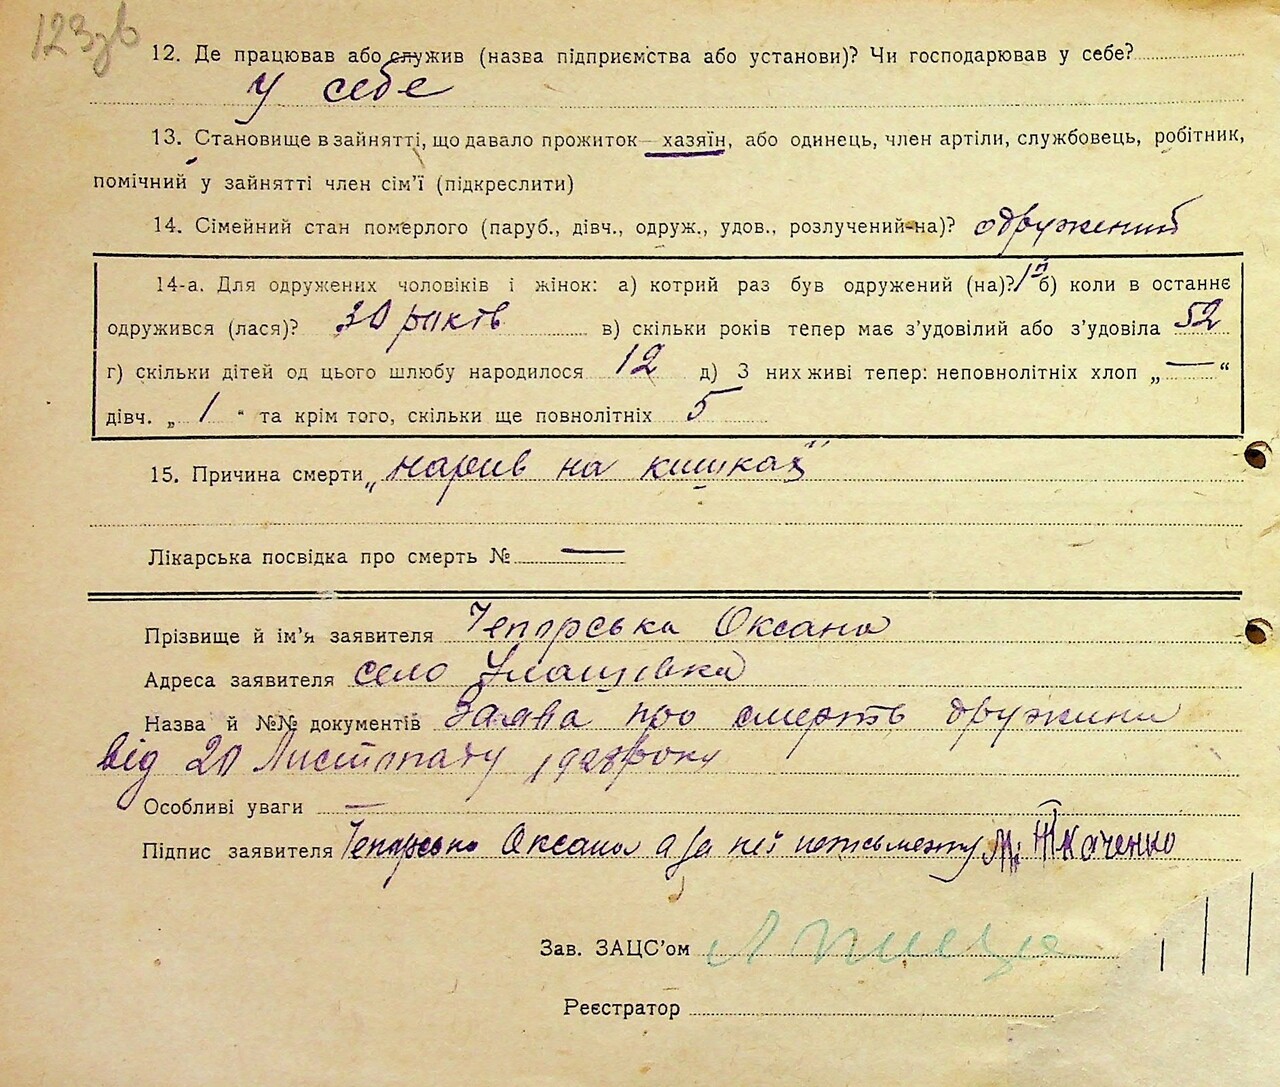 123зв
12. Де працював або служив (назва підприємства або установи)? Чи господарював у себе?
у себе
13. Становище в зайнятті, що давало прожиток — хазяїн, або одинець, член артіли, службовець, робітник,
помічний у зайнятті член сім'ї (підкреслити)
14. Сімейний стан померлого (паруб., дівч., одруж., удов., розлучений-на)? одружений
14-а. Для одружених чоловіків і жінок: а) котрий раз був одружений (на)? 1й б) коли в останнє
одружився (лася)? 30 років в) скільки років тепер має з'удовілий або з'удовіла 52
г) скільки дітей од цього шлюбу народилося 12 д) З них живі тепер: неповнолітніх хлоп „ — “
дівч. „ 1 “ та крім того, скільки ще повнолітніх 5
15. Причина смерти „нарив на кишках"
Лікарська посвідка про смерть № —
Прізвище й ім'я заявителя Оксана
Адреса заявителя село
Назва й №№ документів Заява про смерть дружини
від 20 Листопаду 1928 року
Особливі уваги —
Підпис заявителя Оксана а за неї неписьменну М. Ткаченко
Зав. ЗАЦС'ом
Реєстратор